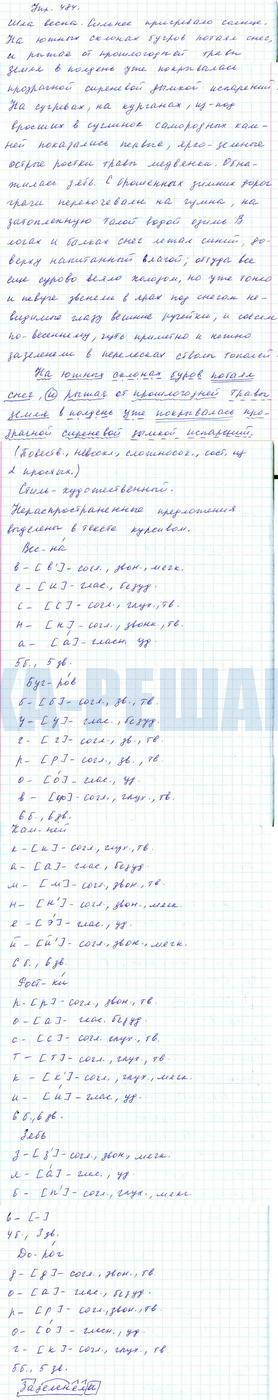 Упр. 484.
Шла весна. Сильнее пригревало солнце.
На южных склонах бугров потаял снег,
и рыжая от прошлогодней травы
земля в полдень уже покрывалась
прозрачной сиреневой дымкой испарений.
На сугревах, на курганах, из-под
вросших в суглинок самородных кам-
ней показались первые, ярко-зеленые
острые ростки травы медвянки. Обна-
жилась зябь. С брошенных зимних дорог
грачи перекочевали на гумна, на
затопленную талой водой озимь. В
логах и балках снег лежал синий, до-
верху напитанный влагой; оттуда все
еще сурово веяло холодом, но уже тонко
и певуче звенели в ярах под снегом не-
видимые глазу вешние ручейки, и совсем
по-весеннему, чуть приметно и нежно
зазеленели в перелесках стволы тополей.
На южных склонах бугров потаял
снег, и рыжая от прошлогодней травы
земля в полдень уже покрывалась про-
зрачной сиреневой дымкой испарений.
(Повеств., невоскл., сложносоч., сост. из
2 простых.)
Стиль - художественный.
Нераспространенные предложения
выделены в тексте курсивом.
Вес-на́
в - [в'] - согл., звон., мягк.
е - [и] - глас., безуд.
с - [с] - согл., глух., тв.
н - [н] - согл., звонк., тв.
а - [а́] - гласн., уд.
5 б., 5 зв.
Буг-ро́в
б - [б] - согл., зв., тв.
у - [у] - глас., безуд.
г - [г] - согл., зв., тв.
р - [р] - согл., зв., тв.
о - [о́] - глас., уд.
в - [ф] - согл., глух., тв.
6 б., 6 зв.
Кам-ней
к - [к] - согл., глух., тв.
а - [а] - глас., безуд.
м - [м] - согл., звон., тв.
н - [н'] - согл., звон., мягк.
е - [э́] - глас., уд.
й - [й'] - согл., звон., мягк.
6 б., 6 зв.
Рост-ки́
р - [р] - согл., звон., тв.
о - [а] - глас. безуд.
с - [с] - согл. глух., тв.
т - [т] - согл., глух., тв.
к - [к'] - согл., глух., мягк.
и - [и́] - глас., уд.
6 б., 6 зв.
Зябь
з - [з'] - согл., звон., мягк.
я - [а́] - глас., уд.
б - [п'] - согл., глух., мягк.
ь - [-]
4 б., 3 зв.
До-ро́г
д - [д] - согл., звон., тв.
о - [а] - глас., безуд.
р - [р] - согл., звон., тв.
о - [о́] - гласн., уд.
г - [к] - согл., глух., тв.
5 б., 5 зв.
Зазеленели